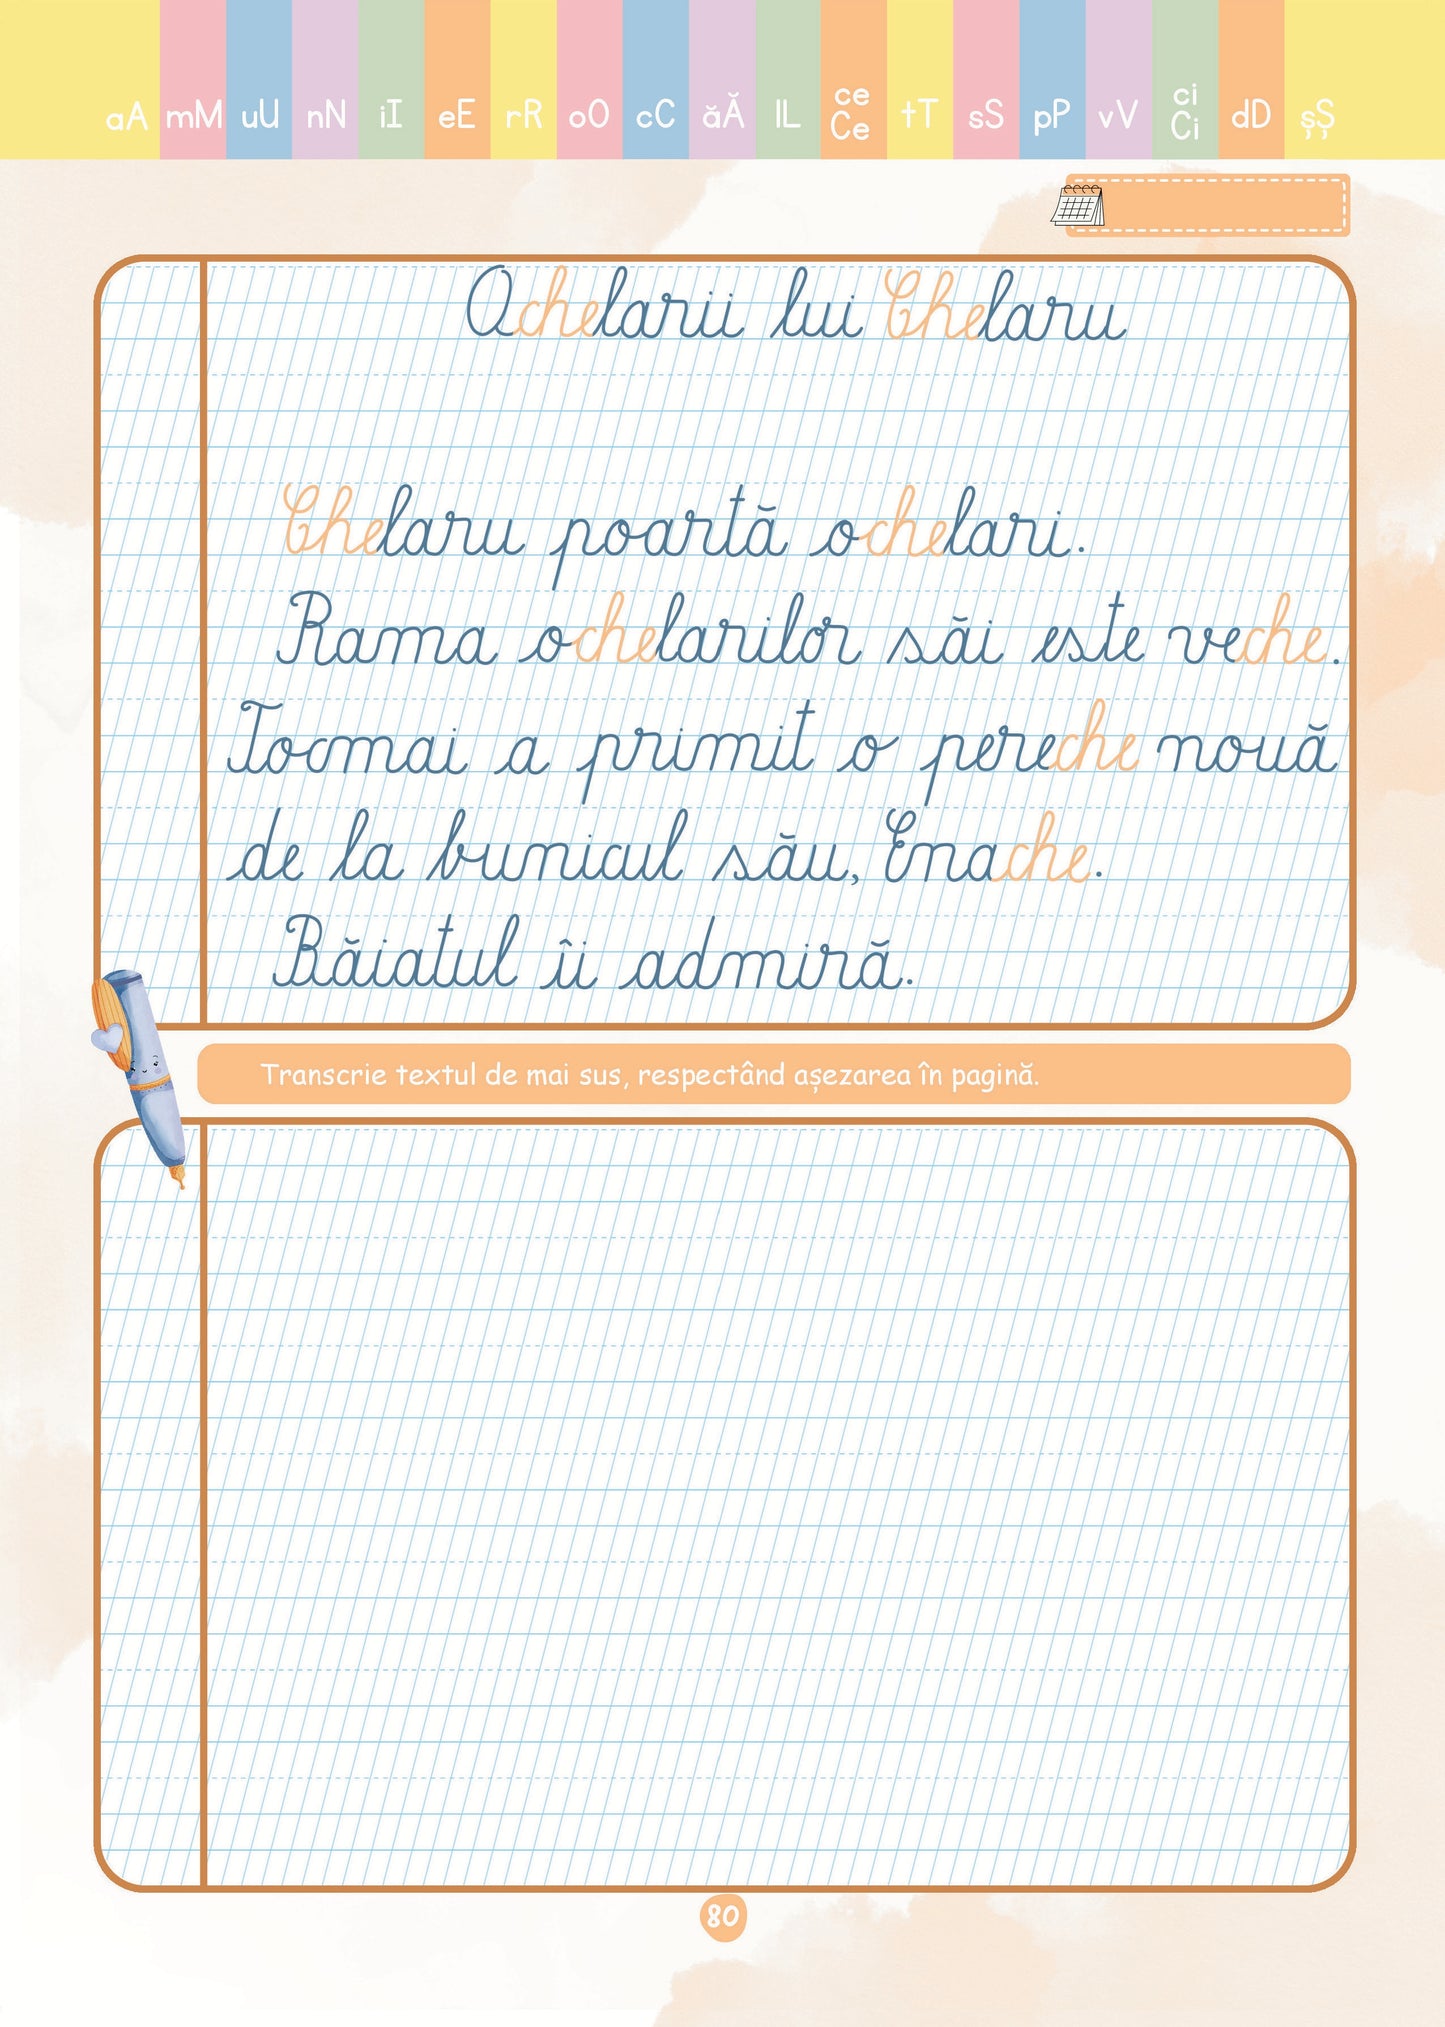 aA mM uU nN iI eE rR oO cC ăĂ lL ce Ce tT sS pP vV ci Ci dD șȘ
Ochelarii lui Chelaru
Chelaru poartă ochelari.
Rama ochelarilor săi este veche.
Tocmai a primit o pereche nouă
de la bunicul său, Enache.
Băiatul îi admiră.
Transcrie textul de mai sus, respectând așezarea în pagină.
80